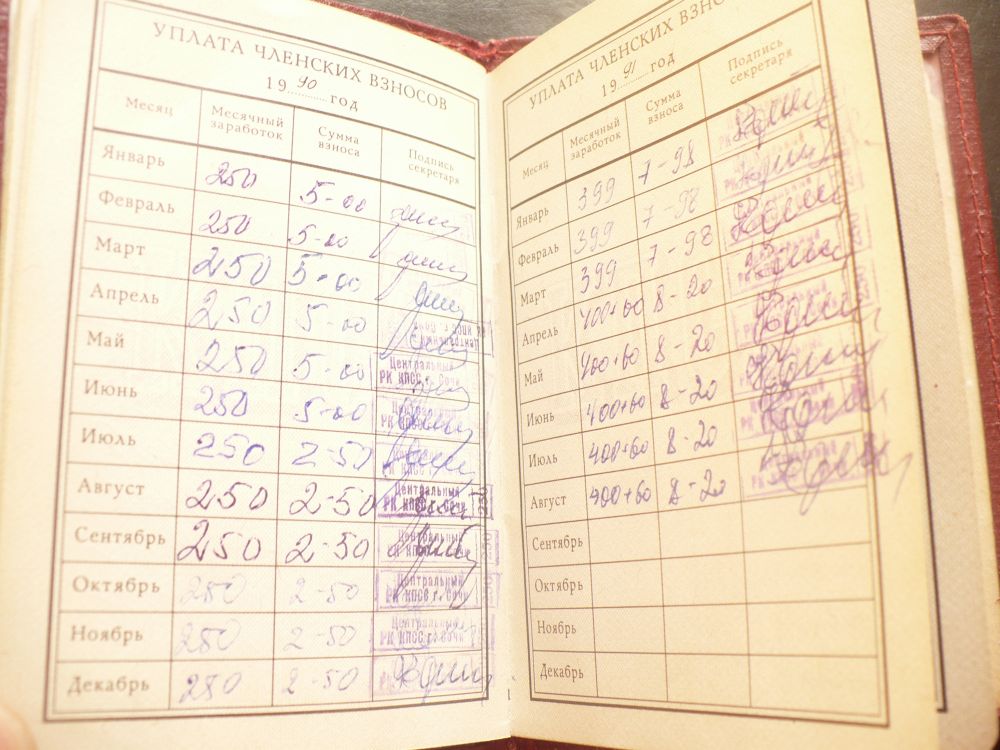 УПЛАТА ЧЛЕНСКИХ ВЗНОСОВ
19 90 год
Месяц Месячный заработок Сумма взноса Подпись секретаря
Январь 250 5-00
Февраль 250 5-00
Март 250 5-00
Апрель 250 5-00
Май 250 5-00 Центральный РК КПСС г. Сочи
Июнь 250 5-00
Июль 250 2-50
Август 250 2-50 Центральный РК КПСС г. Сочи
Сентябрь 250 2-50 Центральный РК КПСС
Октябрь 250 2-50 Центральный РК КПСС г. Сочи
Ноябрь 250 2-50 Центральный РК КПСС г. Сочи
Декабрь 250 2-50
1
УПЛАТА ЧЛЕНСКИХ ВЗНОСОВ
19 91 год
Месяц Месячный заработок Сумма взноса Подпись секретаря
Январь 399 7-98
Февраль 399 7-98
Март 399 7-98
Апрель 400+60 8-20
Май 400+60 8-20
Июнь 400+60 8-20
Июль 400+60 8-20
Август 400+60 8-20
Сентябрь
Октябрь
Ноябрь
Декабрь